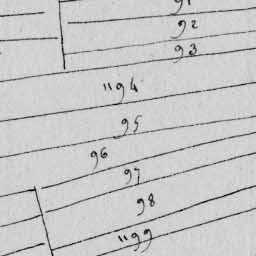 91
92
93
1194
95
96
97
98
1199